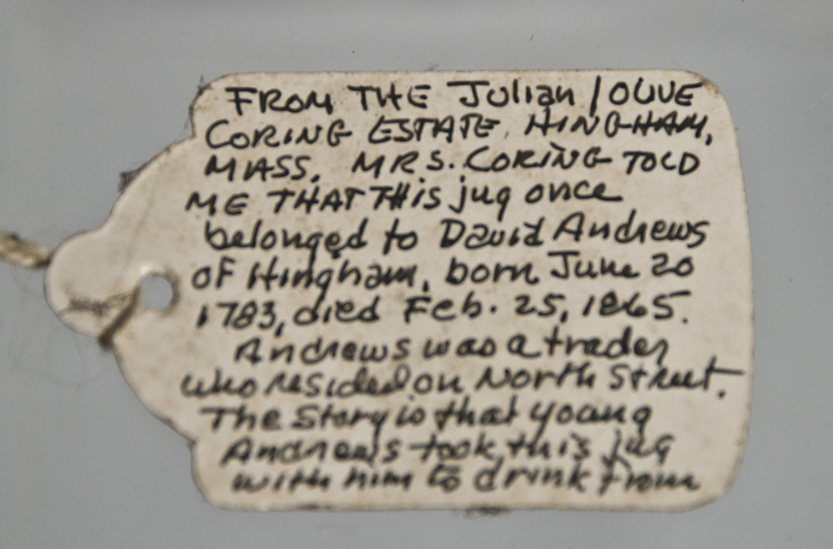 FROM THE Julian / OLIVE
CORING ESTATE, HINGHAM,
MASS. MRS. CORING TOLD
ME THAT THis jug once
belonged to David Andrews
OF Hingham, born June 20
1783, died Feb. 25, 1865.
Andrews was a trader
who resided on North Street.
The Story is that young
Andrews took this jug
with him to drink from